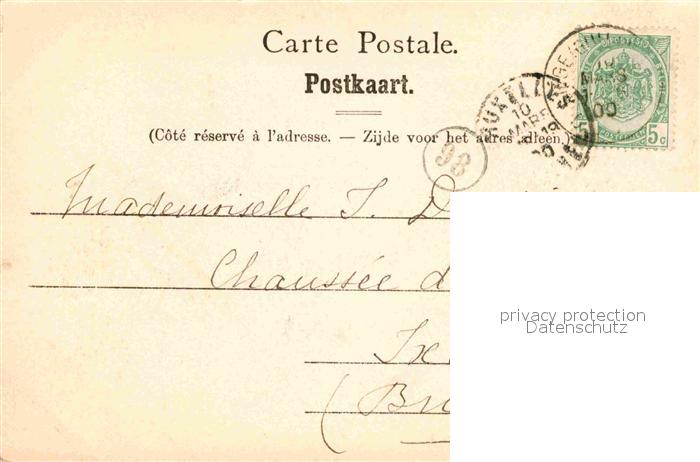 Carte Postale.
Postkaart.
(Côté réservé à l'adresse. — Zijde voor het adres alleen.)
BRUXELLES
10
MARS
MARS
00
5 c
98
Mademoiselle J. D
Chaussée d
Ix
(Bru
privacy protection
Datenschutz